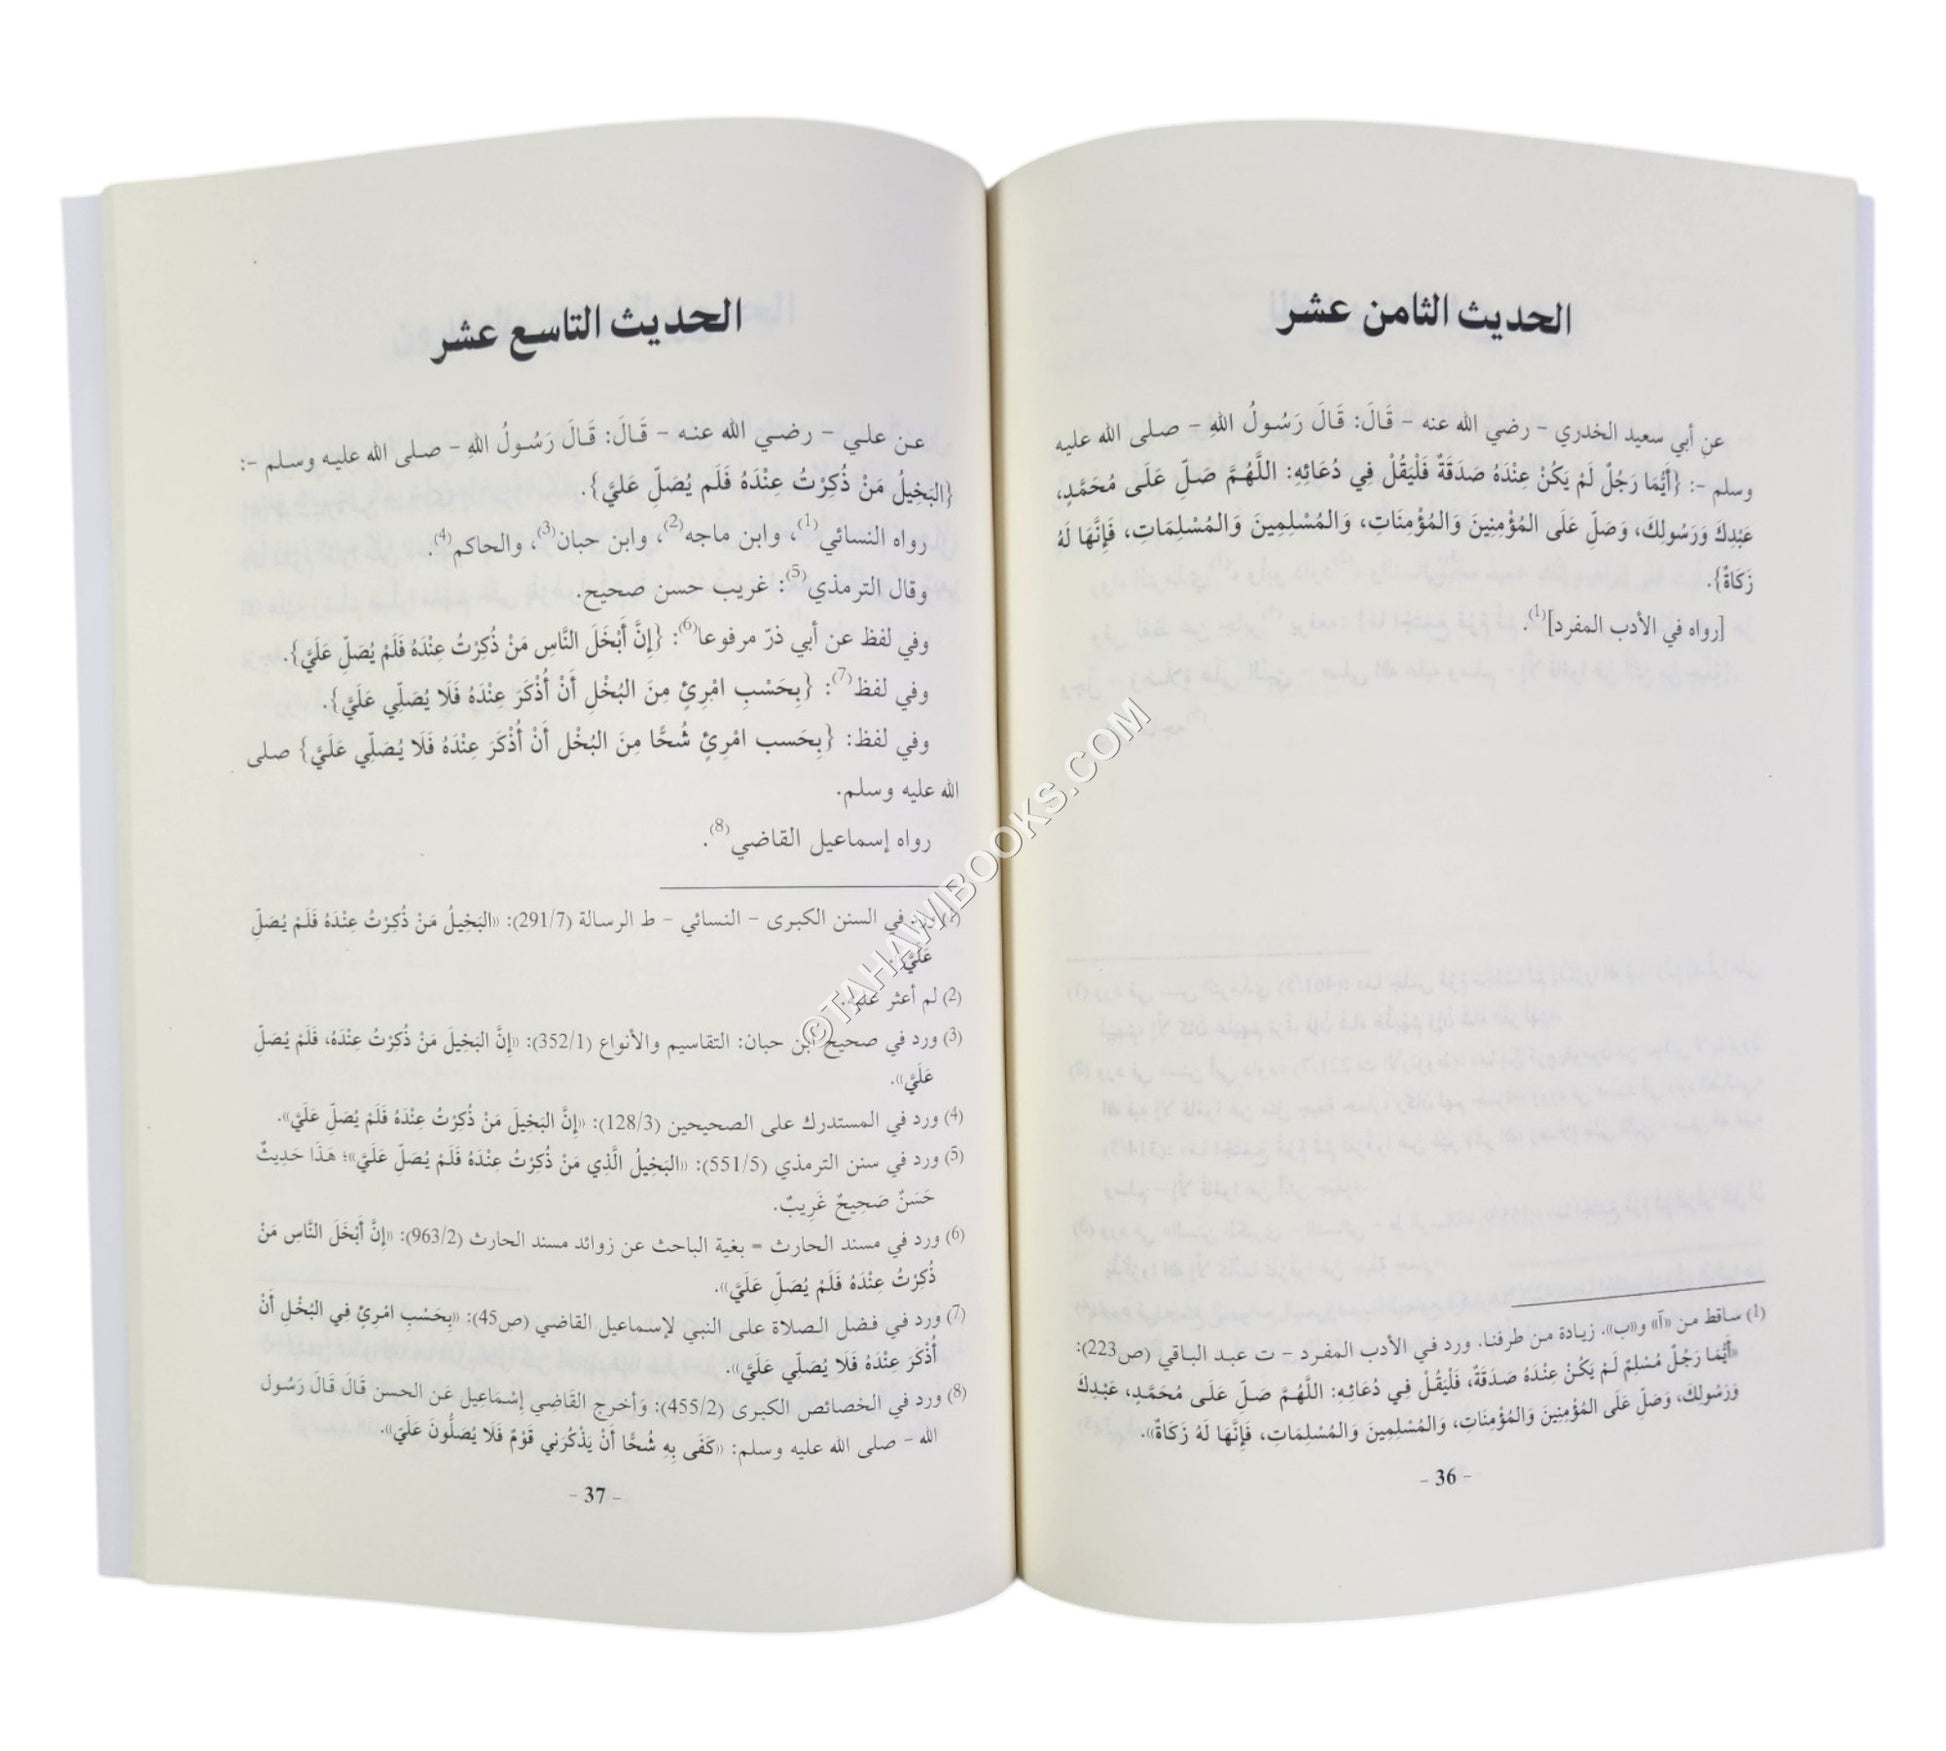 الحديث الثامن عشر
عن أبي سعيد الخدري – رضي الله عنه – قَالَ: قَالَ رَسُولُ اللهِ – صلى الله عليه
وسلم –: {أَيُّمَا رَجُلٌ لَمْ يَكُنْ عِنْدَهُ صَدَقَةٌ فَلْيَقُلْ فِي دُعَائِهِ: اللَّهُمَّ صَلِّ عَلَى مُحَمَّدٍ،
عَبْدِكَ وَرَسُولِكَ، وَصَلِّ عَلَى المُؤْمِنِينَ وَالمُؤْمِنَاتِ، وَالمُسْلِمِينَ وَالمُسْلِمَاتِ، فَإِنَّهَا لَهُ
زَكَاةٌ}.
[رواه في الأدب المفرد](1).
(1) ساقط من «آ» و«ب». زيادة من طرفنا. ورد في الأدب المفرد – ت عبد الباقي (ص223):
«أَيُّمَا رَجُلٌ مُسْلِمٌ لَمْ يَكُنْ عِنْدَهُ صَدَقَةٌ، فَلْيَقُلْ فِي دُعَائِهِ: اللَّهُمَّ صَلِّ عَلَى مُحَمَّدٍ، عَبْدِكَ
وَرَسُولِكَ، وَصَلِّ عَلَى المُؤْمِنِينَ وَالمُؤْمِنَاتِ، وَالمُسْلِمِينَ وَالمُسْلِمَاتِ، فَإِنَّهَا لَهُ زَكَاةٌ».
- 36 -
الحديث التاسع عشر
عن علي – رضي الله عنه – قَالَ: قَالَ رَسُولُ اللهِ – صلى الله عليه وسلم –:
{البَخِيلُ مَنْ ذُكِرْتُ عِنْدَهُ فَلَم يُصَلِّ عَليَّ}.
رواه النسائي(1)، وابن ماجه(2)، وابن حبان(3)، والحاكم(4).
وقال الترمذي(5): غريب حسن صحيح.
وفي لفظ عن أبي ذرّ مرفوعا(6): {إِنَّ أَبْخَلَ النَّاسِ مَنْ ذُكِرْتُ عِنْدَهُ فَلَمْ يُصَلِّ عَلَيَّ}.
وفي لفظ(7): {بِحَسْبِ امْرِئٍ مِنَ البُخْلِ أَنْ أُذْكَرَ عِنْدَهُ فَلَا يُصَلِّي عَلَيَّ}.
وفي لفظ: {بِحَسب امْرِئٍ شُحًّا مِنَ البُخْل أَنْ أُذْكَرَ عِنْدَهُ فَلَا يُصَلِّي عَلَيَّ} صلى
الله عليه وسلم.
رواه إسماعيل القاضي(8).
(1) ورد في السنن الكبرى – النسائي – ط الرسالة (291/7): «البَخِيلُ مَنْ ذُكِرْتُ عِنْدَهُ فَلَمْ يُصَلِّ
عَلَيَّ».
(2) لم أعثر عليه.
(3) ورد في صحيح ابن حبان: التقاسيم والأنواع (352/1): «إِنَّ البَخِيلَ مَنْ ذُكِرْتُ عِنْدَهُ، فَلَمْ يُصَلِّ
عَلَيَّ».
(4) ورد في المستدرك على الصحيحين (128/3): «إِنَّ البَخِيلَ مَنْ ذُكِرْتُ عِنْدَهُ فَلَمْ يُصَلِّ عَلَيَّ».
(5) ورد في سنن الترمذي (551/5): «البَخِيلُ الَّذِي مَنْ ذُكِرْتُ عِنْدَهُ فَلَمْ يُصَلِّ عَلَيَّ»؛ هَذَا حَدِيثٌ
حَسَنٌ صَحِيحٌ غَرِيبٌ.
(6) ورد في مسند الحارث = بغية الباحث عن زوائد مسند الحارث (963/2): «إِنَّ أَبْخَلَ النَّاسِ مَنْ
ذُكِرْتُ عِنْدَهُ فَلَمْ يُصَلِّ عَلَيَّ».
(7) ورد في فضل الصلاة على النبي لإسماعيل القاضي (ص45): «بِحَسْبِ امْرِئٍ فِي البُخْلِ أَنْ
أُذْكَرَ عِنْدَهُ فَلَا يُصَلِّي عَلَيَّ».
(8) ورد في الخصائص الكبرى (455/2): وَأخرج القَاضِي إِسْمَاعِيل عَن الحسن قَالَ قَالَ رَسُول
الله – صلى الله عليه وسلم: «كَفَى بِهِ شُحًّا أَنْ يَذْكُرَنِي قَوْمٌ فَلَا يُصَلُّونَ عَلَيّ».
- 37 -
©TAHAWIBOOKS.COM